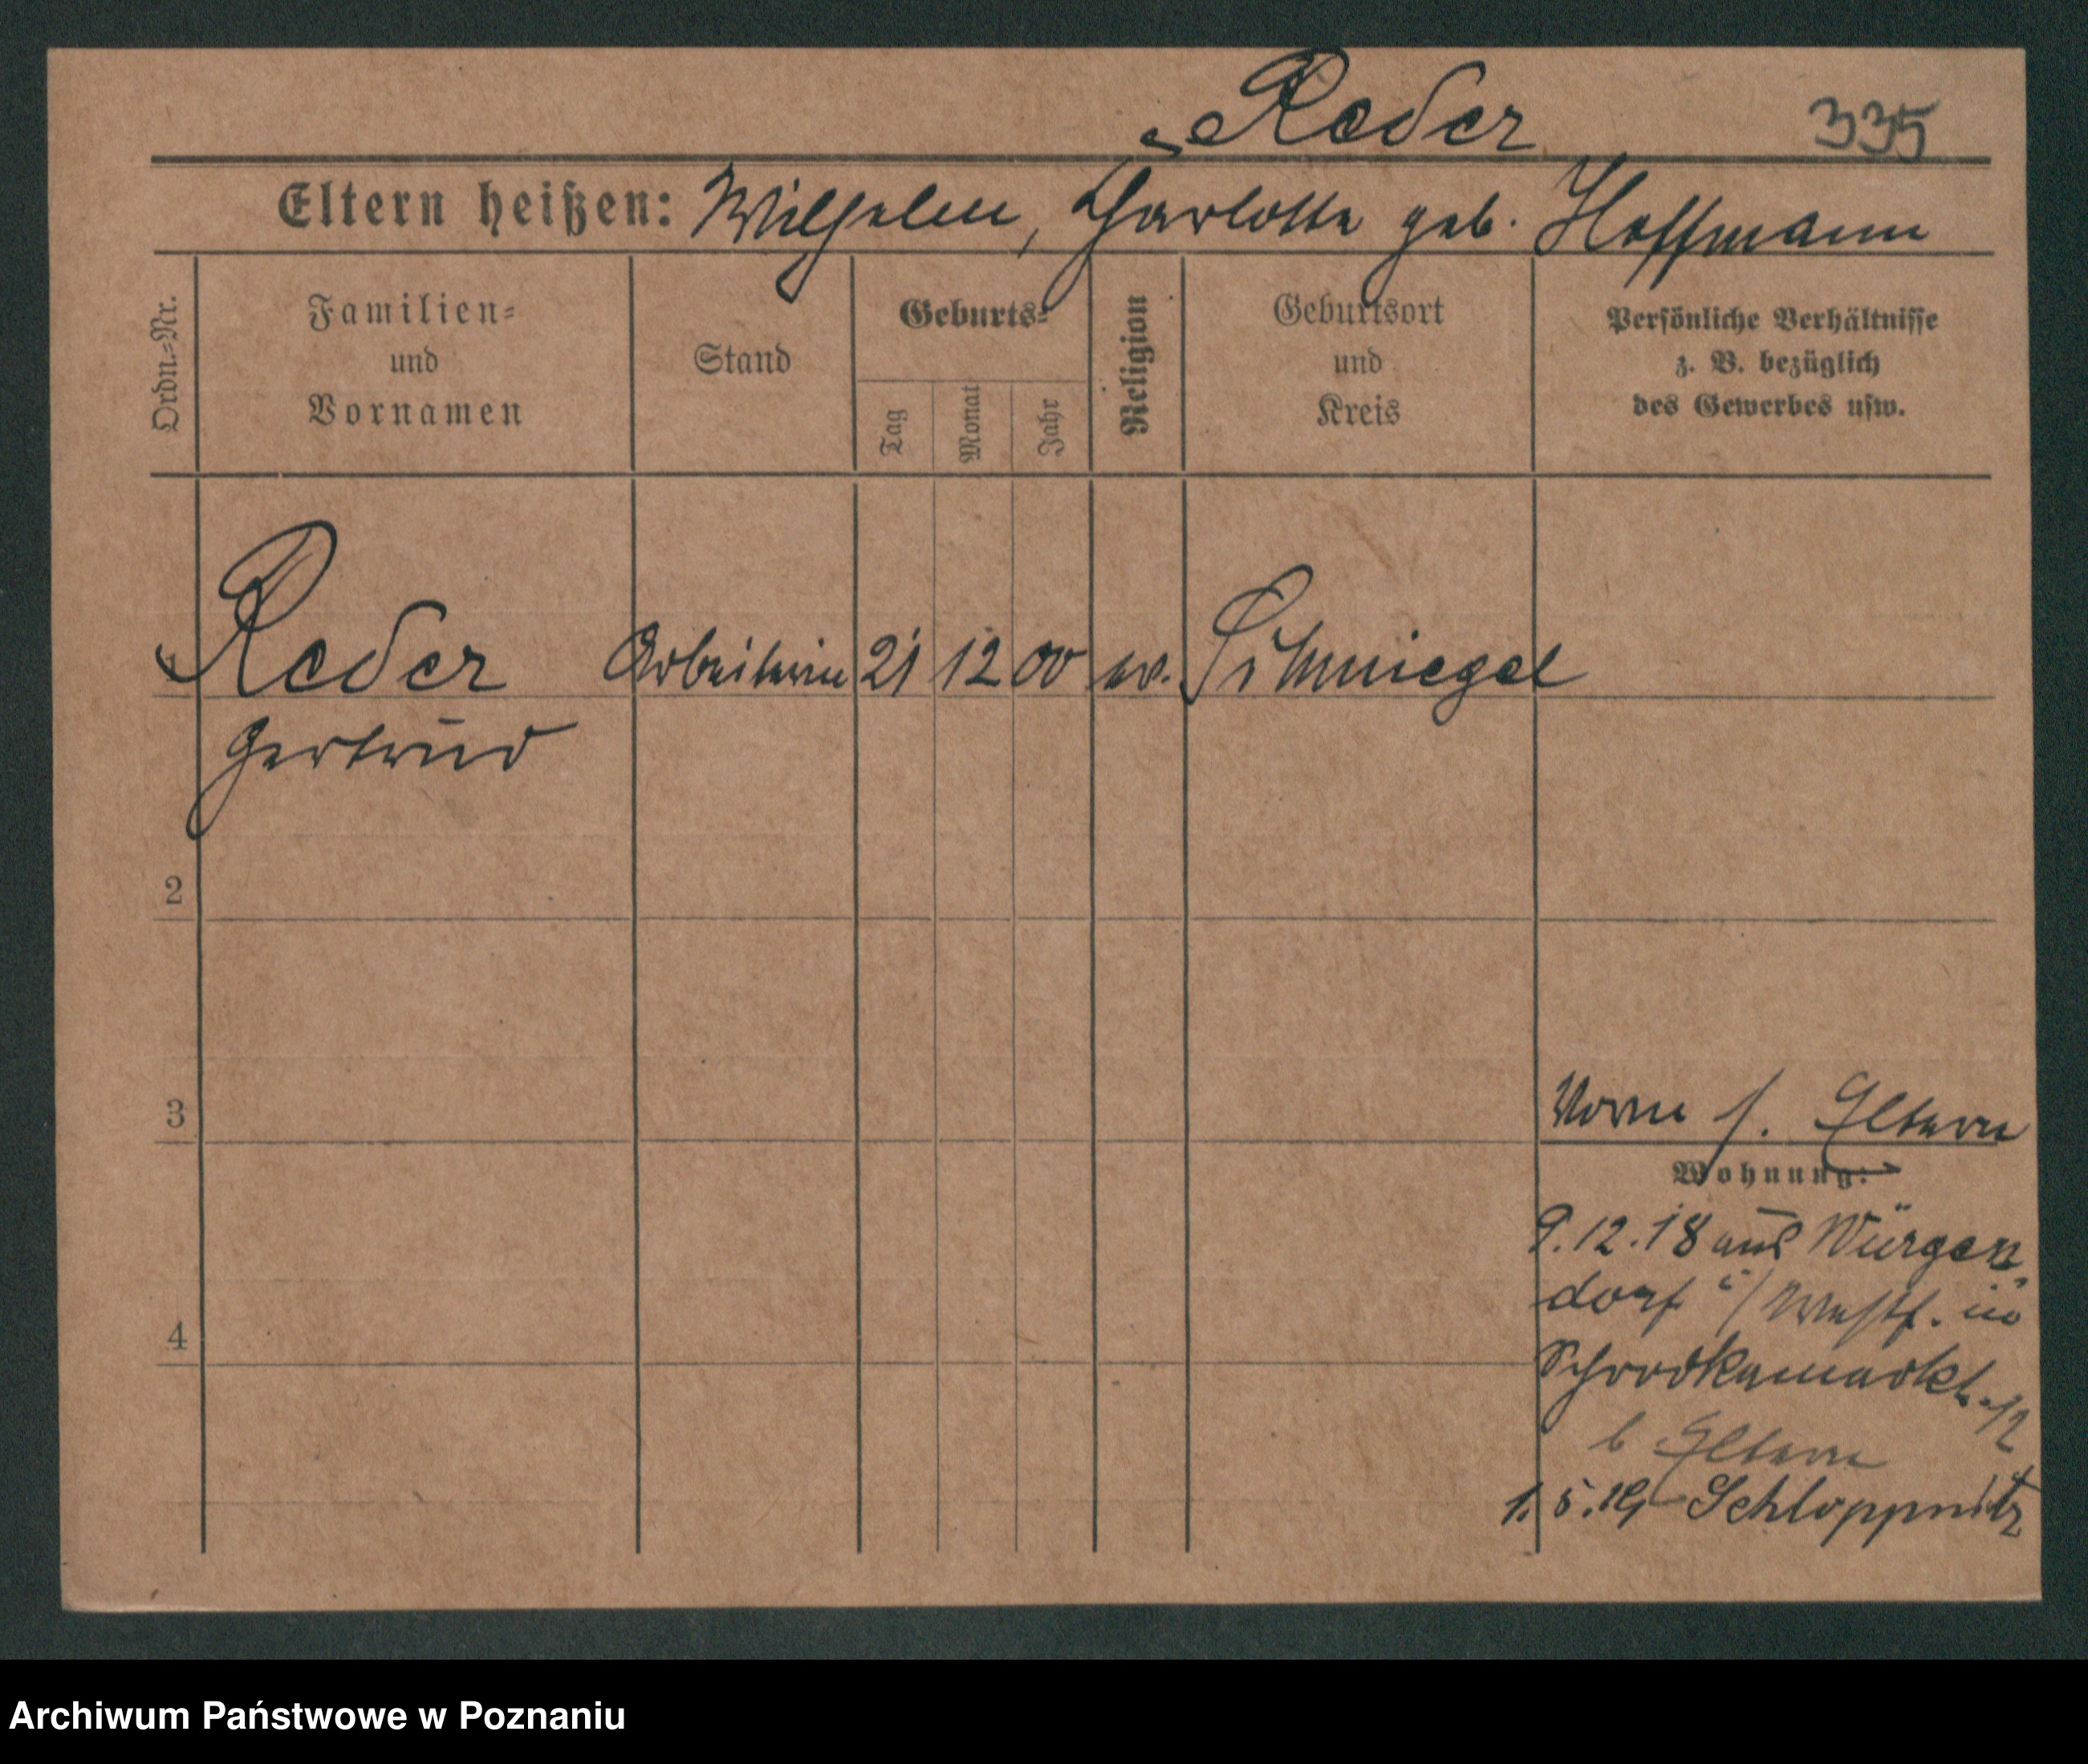 Reder 335
Eltern heißen: Wilhelm, Charlotte geb. Hoffmann
Ordn.-Nr.
Familien-
und
Vornamen
Stand
Geburts-
Tag
Monat
Jahr
Religion
Geburtsort
und
Kreis
Persönliche Verhältnisse
z. B. bezüglich
des Gewerbes usw.
1 Reder Arbeiterin 21 12 00 ev. Schmiegel
Gertrud
2
3
Vorm f. Eltern
Wohnung:
9.12.18 aus Würgen
dorf i/Westf. in
Schrodkamarkt
b Eltern
1.5.19 Schloppnitz
4
Archiwum Państwowe w Poznaniu